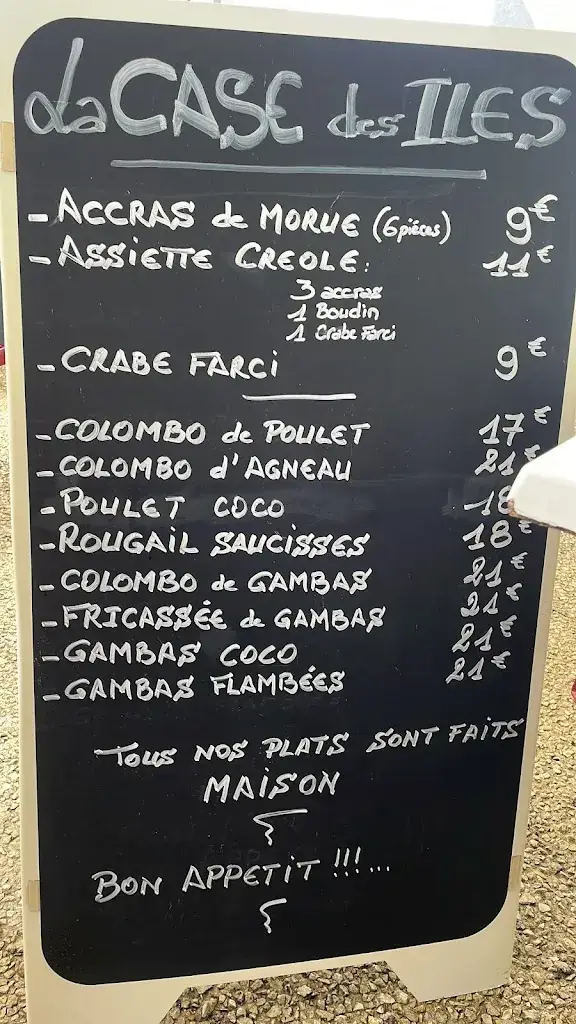 La CASE des ILES
- ACCRAS de MORUE (6 pièces) 9€
- ASSIETTE CREOLE: 11€
3 accras
1 Boudin
1 Crabe Farci
- CRABE FARCI 9€
- COLOMBO de POULET 17€
- COLOMBO d'AGNEAU 21€
- POULET COCO 18
- ROUGAIL SAUCISSES 18€
- COLOMBO de GAMBAS 21€
- FRICASSÉE de GAMBAS 21€
- GAMBAS COCO 21€
- GAMBAS FLAMBÉES 21€
TOUS NOS PLATS SONT FAITS
MAISON
BON APPETIT !!!...